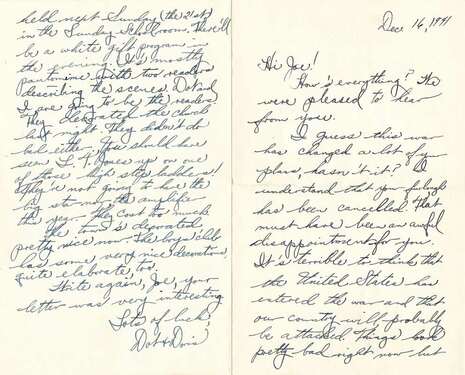 Dec. 16, 1941
Hi Joe!
How's everything? We
were pleased to hear
from you.
I guess this war
has changed a lot of your
plans, hasn't it? I
understand that your furlough
has been cancelled. That
must have been an awful
disappointment for you.
It's terrible to think that
the United States has
entered the war and that
our country will probably
be attacked. Things look
pretty bad right now but
held next Sunday (the 21st)
in the Sunday School room. There'll
be a white gift program in
the evening. It's mostly
pantomime with two readers
describing the scenes. Dot and
I are going to be the readers.
They decorated the church
last night. They didn't do
bad either. You should have
seen L. F. Jones up on one
of those high step ladders!
They're not going to have the
big star on the
this year - they cost too much.
The town's decorated
pretty nice now. The boys' club
has some very nice decorations,
quite elaborate, too.
Write again, Joe, your
letter was very interesting.
Lots of luck!
Dot & Doris